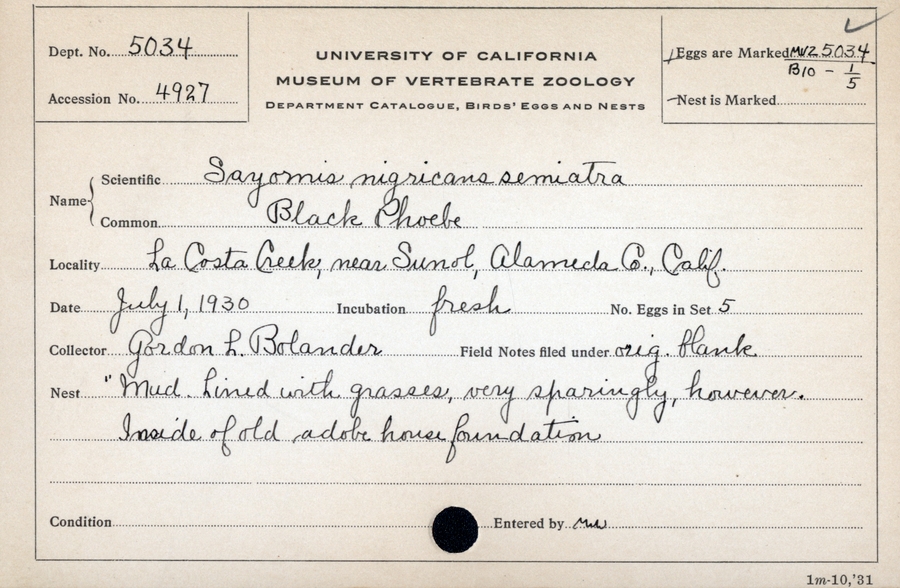 Dept. No. 5034
Accession No. 4927
UNIVERSITY OF CALIFORNIA
MUSEUM OF VERTEBRATE ZOOLOGY
DEPARTMENT CATALOGUE, BIRDS' EGGS AND NESTS
Eggs are Marked MVZ 5034
B10 - 1/5
Nest is Marked
Name
Scientific Sayornis nigricans semiatra
Common Black Phoebe
Locality La Costa Creek, near Sunol, Alameda Co., Calif.
Date July 1, 1930 Incubation fresh No. Eggs in Set 5
Collector Gordon L. Bolander Field Notes filed under orig. blank
Nest "Mud. Lined with grasses, very sparingly, however.
Inside of old adobe house foundation
Condition Entered by
1m-10,'31